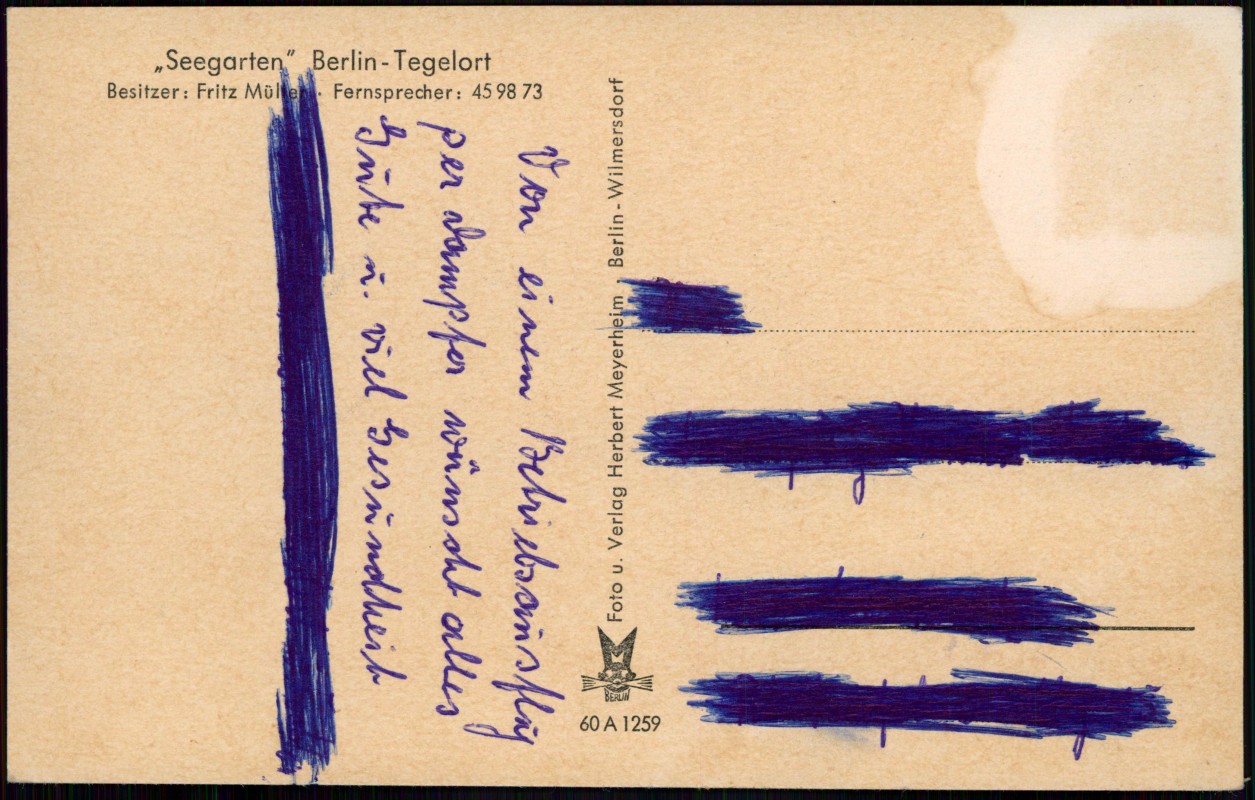 „Seegarten" Berlin-Tegelort
Besitzer: Fritz Müller · Fernsprecher: 45 98 73
Von einem Betriebsausflug
per dampfer wünscht alles
Gute u. viel Gesundheit
Foto u. Verlag Herbert Meyerheim, Berlin-Wilmersdorf
BERLIN
60 A 1259